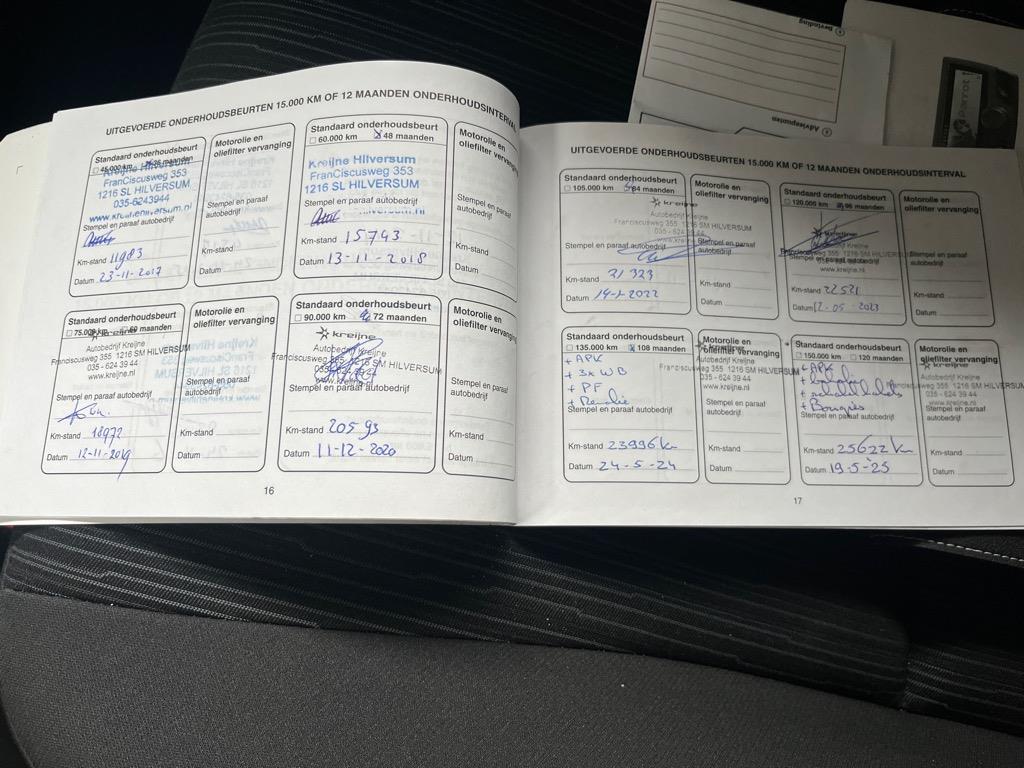 UITGEVOERDE ONDERHOUDSBEURTEN 15.000 KM OF 12 MAANDEN ONDERHOUDSINTERVAL
Standaard onderhoudsbeurt
45.000 km 36 maanden
Kreijne Hilversum
FranCiscusweg 353
1216 SL HILVERSUM
035-6243944
Stempel en paraaf
autobedrijf
Km-stand 11983
Datum 23-11-2017
Motorolie en
oliefilter vervanging
Stempel en paraaf
autobedrijf
Km-stand
Datum
Standaard onderhoudsbeurt
60.000 km 48 maanden
Kreijne Hilversum
FranCiscusweg 353
1216 SL HILVERSUM
Stempel en paraaf autobedrijf
Km-stand 15743
Datum 13-11-2018
Motorolie en
oliefilter vervanging
Stempel en paraaf
autobedrijf
Km-stand
Datum
Standaard onderhoudsbeurt
75.000 km 60 maanden
kreijne
Autobedrijf Kreijne
Franciscusweg 355 1216 SM HILVERSUM
035 - 624 39 44
www.kreijne.nl
Stempel en paraaf autobedrijf
Km-stand 18972
Datum 12-11-2019
Motorolie en
oliefilter vervanging
Stempel en paraaf
autobedrijf
Km-stand
Datum
Standaard onderhoudsbeurt
90.000 km 72 maanden
kreijne
Autobedrijf Kreijne
Franciscusweg 355 1216 SM HILVERSUM
035 - 624 39 44
www.kreijne.nl
Stempel en paraaf autobedrijf
Km-stand 20593
Datum 11-12-2020
Motorolie en
oliefilter vervanging
Stempel en paraaf
autobedrijf
Km-stand
Datum
16
UITGEVOERDE ONDERHOUDSBEURTEN 15.000 KM OF 12 MAANDEN ONDERHOUDSINTERVAL
Standaard onderhoudsbeurt
105.000 km 84 maanden
kreijne
Autobedrijf Kreijne
Franciscusweg 355 1216 SM HILVERSUM
Stempel en paraaf autobedrijf
Km-stand 21323
Datum 14-1-2022
Motorolie en
oliefilter vervanging
Stempel en paraaf
autobedrijf
Km-stand
Datum
Standaard onderhoudsbeurt
120.000 km 96 maanden
kreijne
Autobedrijf Kreijne
Franciscusweg 355 1216 SM HILVERSUM
Stempel en paraaf autobedrijf
www.kreijne.nl
Km-stand 22521
Datum 12-05-2023
Motorolie en
oliefilter vervanging
Stempel en paraaf
autobedrijf
Km-stand
Datum
Standaard onderhoudsbeurt
135.000 km 108 maanden
+ APK
+ 3x WB
+ PF
Stempel en paraaf autobedrijf
Km-stand 23996 km
Datum 24-5-24
Motorolie en
oliefilter vervanging
kreijne
Autobedrijf Kreijne
Franciscusweg 355 1216 SM HILVERSUM
035 - 624 39 44
www.kreijne.nl
Stempel en paraaf
autobedrijf
Km-stand
Datum
Standaard onderhoudsbeurt
150.000 km 120 maanden
+ APK
+ Bougies
Stempel en paraaf autobedrijf
Km-stand 25622 km
Datum 19-5-25
Motorolie en
oliefilter vervanging
kreijne
Franciscusweg 355 1216 SM HILVERSUM
035 - 624 39 44
www.kreijne.nl
Stempel en paraaf
autobedrijf
Km-stand
Datum
17
Bevinding
Adviespunten